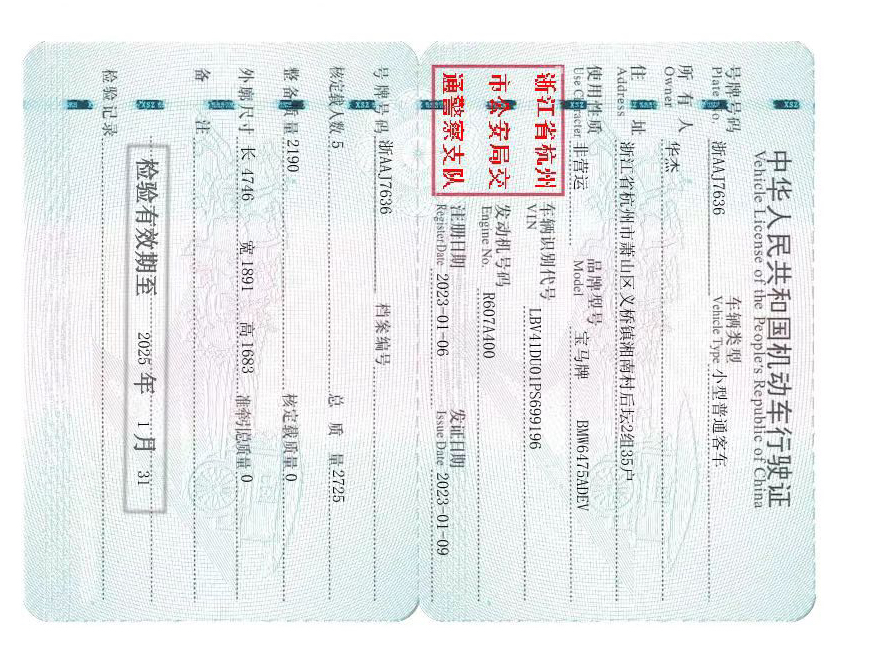 中华人民共和国机动车行驶证
Vehicle License of the People's Republic of China
号牌号码 浙AAJ7636 车辆类型 小型普通客车
Plate No. Vehicle Type
所有人 华杰
Owner
住址 浙江省杭州市萧山区义桥镇湘南村后坛2组35户
Address
使用性质 非营运 品牌型号 宝马牌 BMW6475ADEV
Use Character Model
浙江省杭州
市公安局交
通警察支队
车辆识别代号 LBV41DU01PS699196
VIN
发动机号码 R607A400
Engine No.
注册日期 2023-01-06 发证日期 2023-01-09
Register Date Issue Date
号牌号码 浙AAJ7636 档案编号
核定载人数 5 总质量 2725
整备质量 2190 核定载质量 0
外廓尺寸 长 4746 宽 1891 高 1683 准牵引总质量 0
备注
检验有效期至 2025 年 1 月 31
检验记录
XSZ
XSZ
XSZ